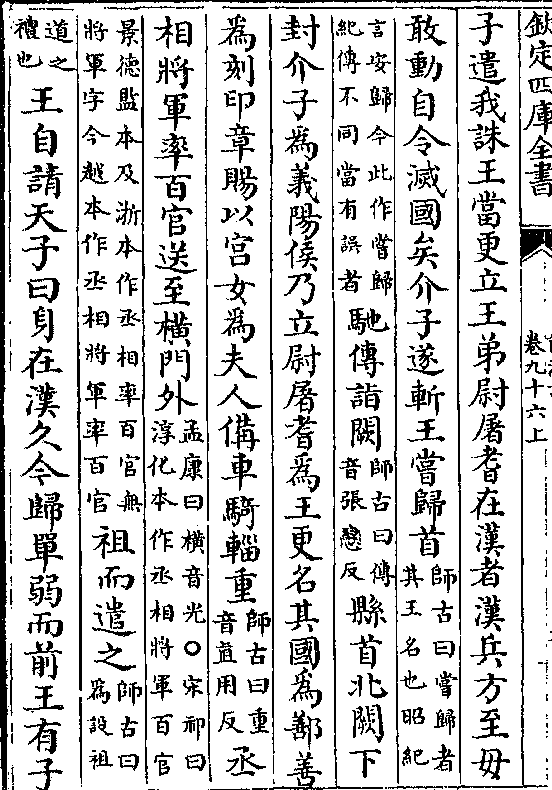 欽定四庫全書
卷九十六上
子遣我誅王當更立王弟尉屠耆在漢者漢兵方至毋
敢動自令滅國矣介子遂斬王嘗歸首師古曰嘗歸者其王名也昭紀
言安歸今此作嘗歸紀傳不同當有誤者馳傳詣闕師古曰傳音張戀反縣首北闕下
封介子為義陽侯乃立尉屠耆為王更名其國為鄯善
為刻印章賜以宫女為夫人備車騎輜重師古曰重音直用反丞
相將軍率百官送至橫門外孟康曰橫音光○宋祁曰淳化本作丞相將軍百官
景德監本及浙本作丞相率百官無將軍字今越本作丞相將軍率百官祖而遣之師古曰為設祖
道之禮也王自請天子曰身在漢久今歸單弱而前王有子